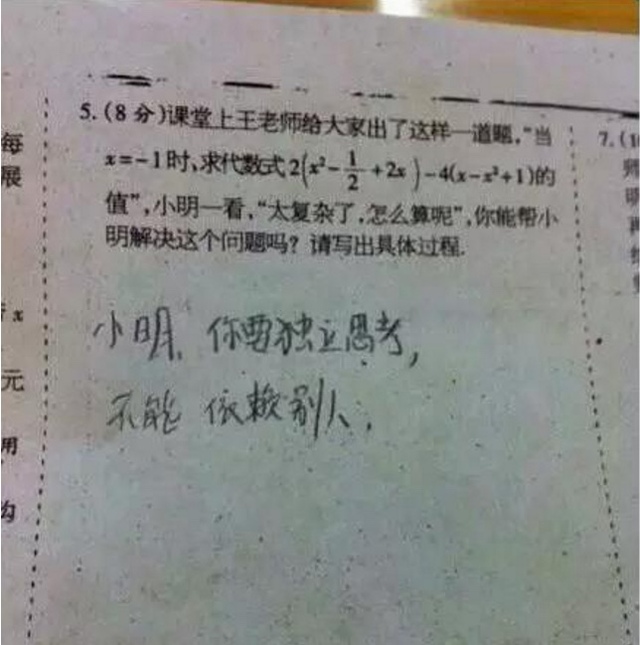 5.(8分)课堂上王老师给大家出了这样一道题,"当
x=-1时,求代数式2(x²-1/2+2x)-4(x-x²+1)的
值",小明一看,"太复杂了,怎么算呢",你能帮小
明解决这个问题吗?请写出具体过程.
小明,你要独立思考,
不能依赖别人.
每
展
x
元
用
7.(1